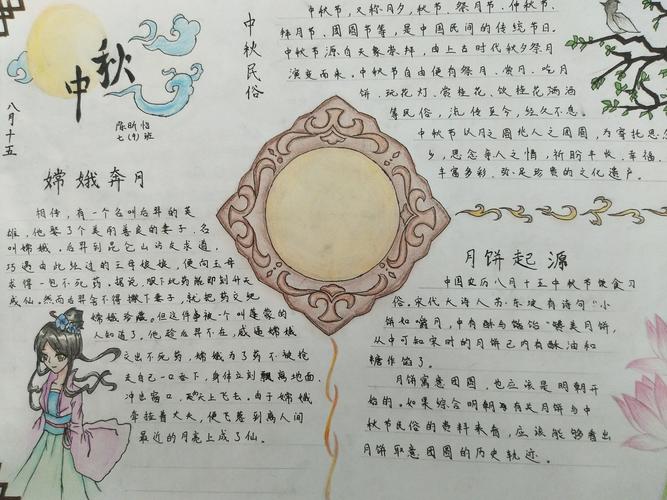 中秋
八月十五
陈昕怡
七(9)班
中秋民俗
中秋节,又称月夕,秋节,祭月节、仲秋节、
拜月节、团圆节等,是中国民间的传统节日。
中秋节源自天象崇拜,由上古时代秋夕祭月
演变而来。中秋节自由便有祭月、赏月、吃月
饼、玩花灯、赏桂花、饮桂花酒
等民俗,流传至今,经久不息。
中秋节以月之圆兆人之团圆,为寄托思
乡,思念亲人之情,祈盼丰收、幸福,
丰富多彩、弥足珍贵的文化遗产。
嫦娥奔月
相传,有一个名叫后羿的英
雄,他娶了个美丽善良的妻子,名
叫嫦娥。后羿到昆仑山访友求道,
巧遇由此经过的王母娘娘,便向王母
求得一包不死药。据说,服下此药能即刻升天
成仙。然而后羿舍不得撇下妻子,就把药交她
嫦娥珍藏。但这件事被一个叫蓬蒙的
人知道了,他趁后羿不在,威逼嫦娥
交出不死药,嫦娥为了药不被抢
走自己一口吞下,身体立刻飘离地面、
冲出窗口,天上飞去。由于嫦娥
牵挂着丈夫,便飞落到离人间
最近的月亮上成了仙。
月饼起源
中国农历八月十五中秋节饮食习
俗,宋代大诗人苏东坡有诗句“小
饼如嚼月,中有酥与馅饴”赞美月饼,
从中可知宋时的月饼已内有酥油和
糖作馅了。
月饼寓意团圆,也应该是明朝开
始的。如果综合明朝有关月饼与中
秋节民俗的资料来看,应该能够看出
月饼取意团圆的历史轨迹。